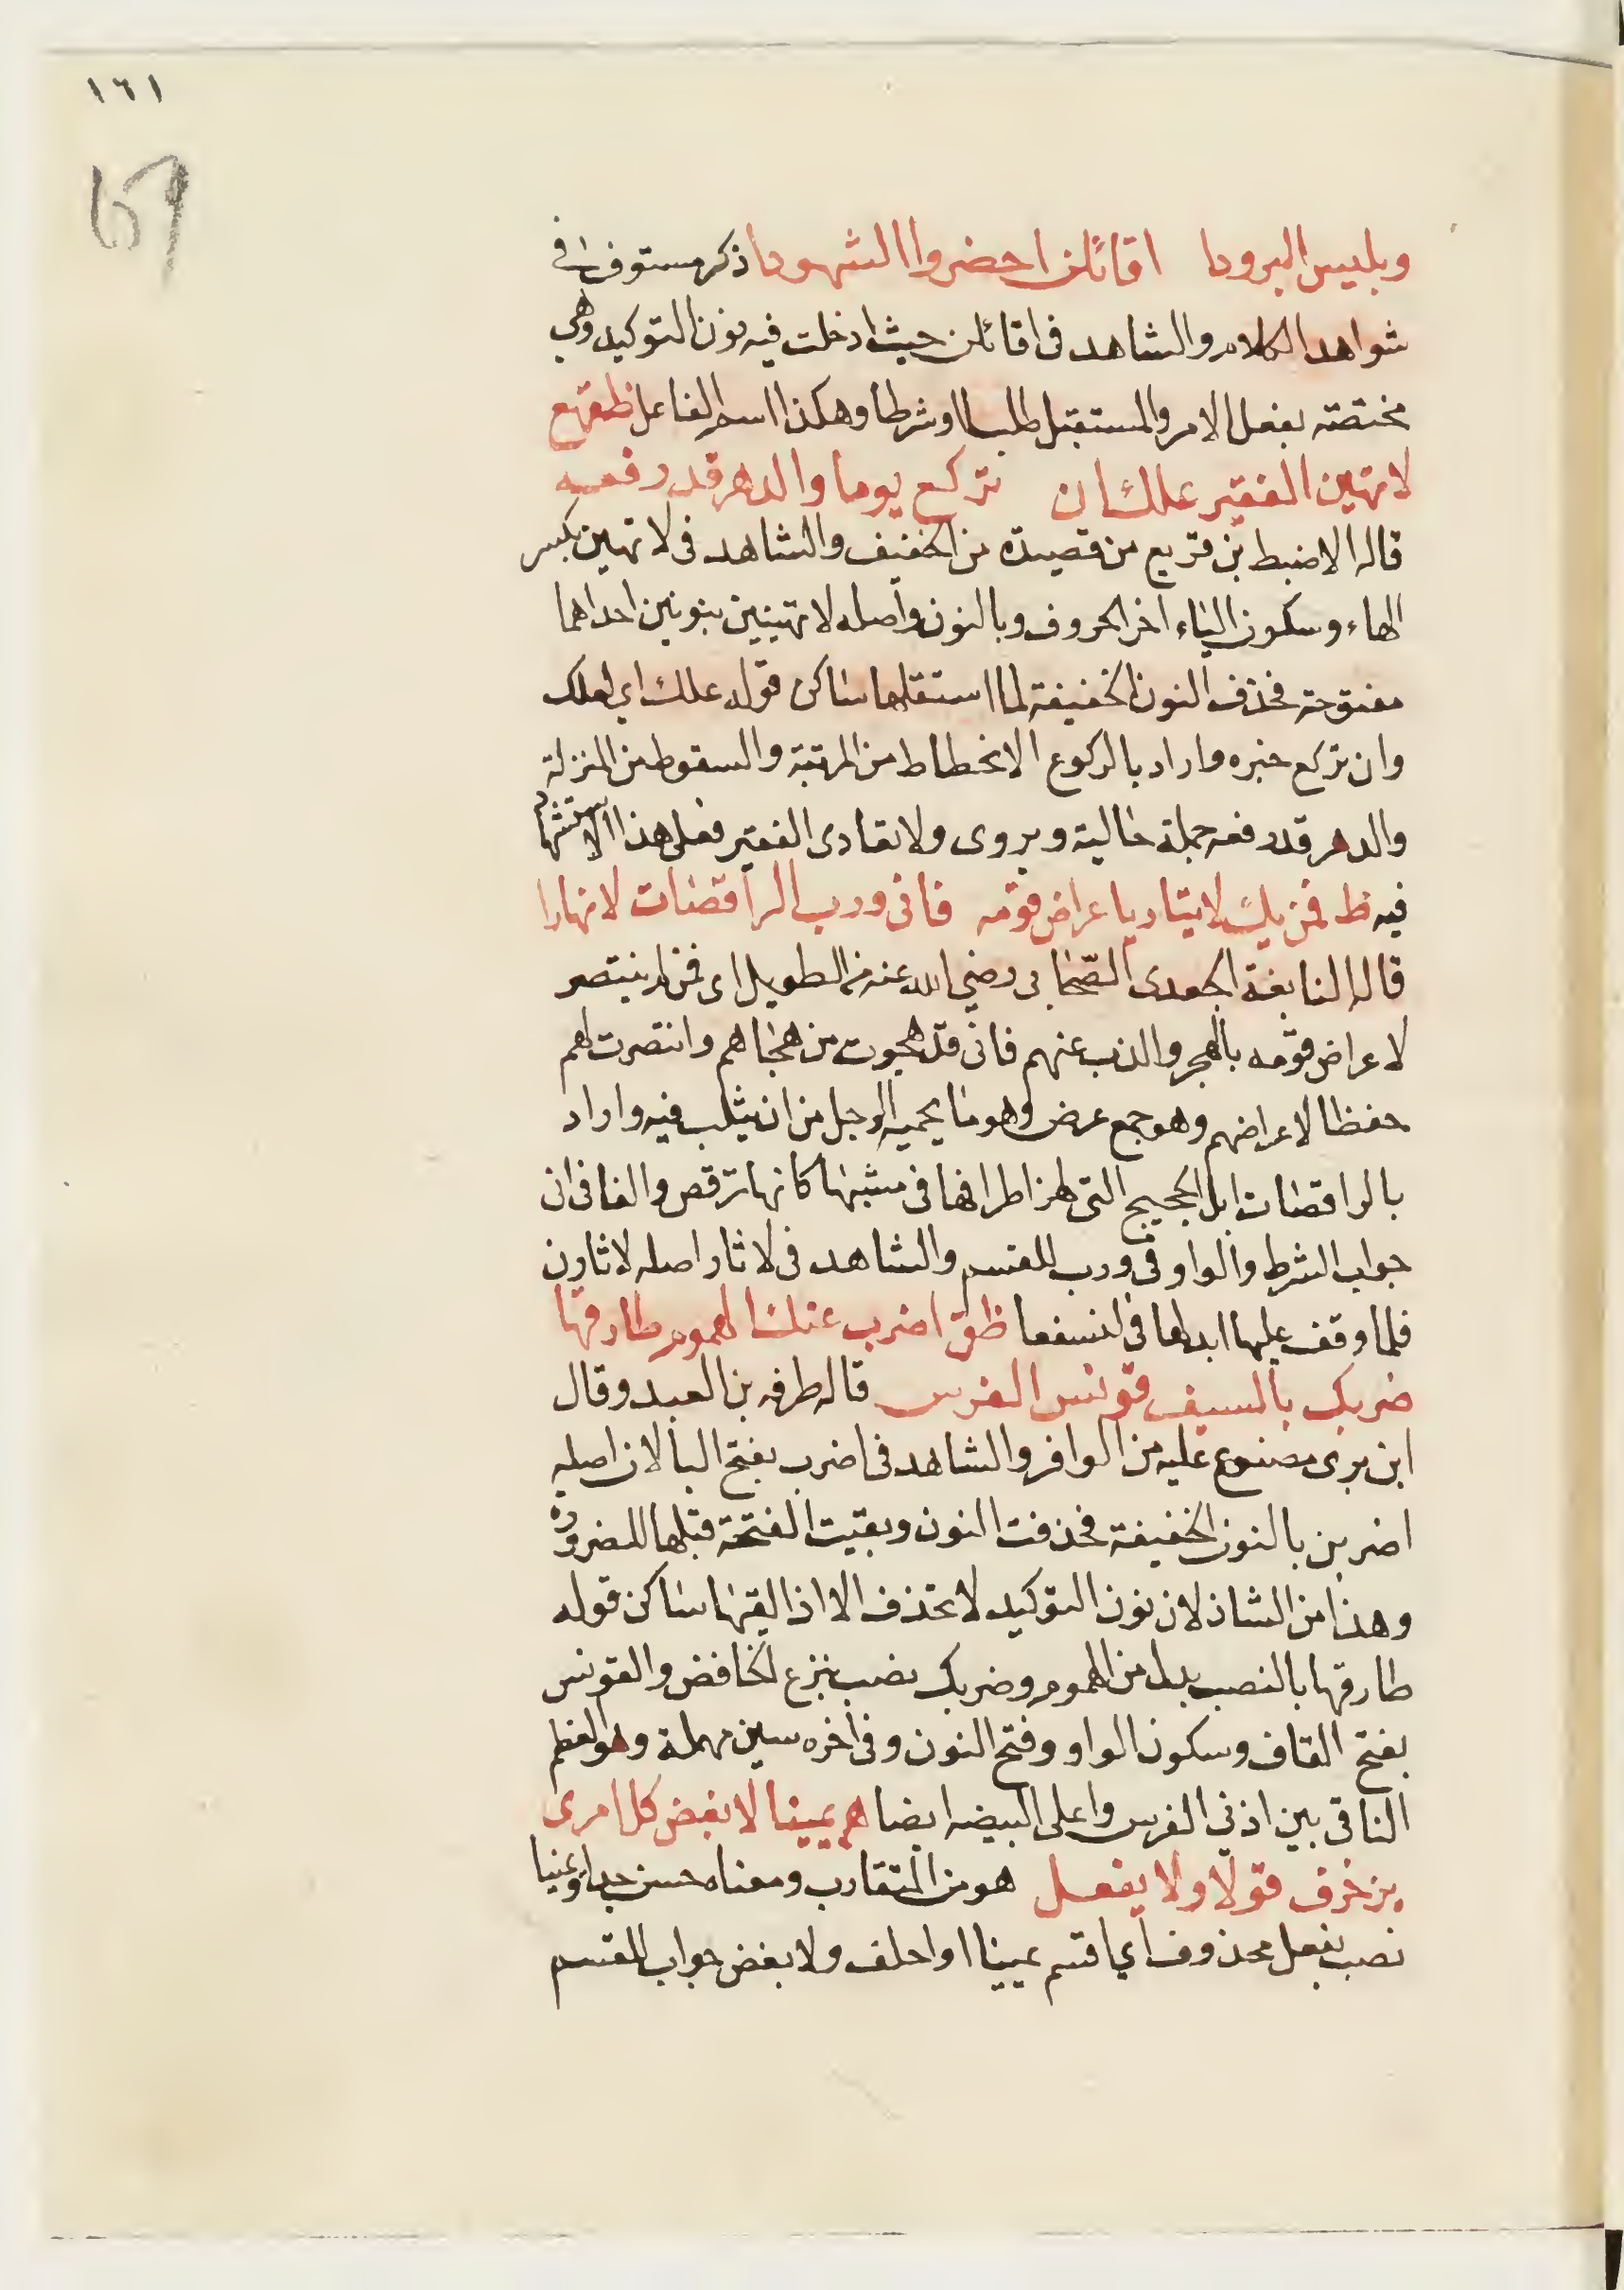 ١٦١
159
ويلبس البرودا اقائلن احضروا الشهودا ذكر مستوفى في
شواهد الكلام والشاهد فى اقائلن حيث ادخلت فيه نون التوكيد وهي
مختصة بفعل الامر والمستقبل طلبا او شرطا وهكذا اسم الفاعل ظقهع
لا تهين الفقير علك ان تركع يوما والدهر قد رفعه
قاله الاضبط بن قريع من قصيدة من الخفيف والشاهد فى لا تهين بكسر
الهاء وسكون الياء اخر الحروف وبالنون واصله لا تهينين بنونين احداهما
مفتوحة فحذف النون الخفيفة لما استقلها ساكن قوله علك اي لعلك
وان تركع خبره واراد بالركوع الانحطاط من المرتبة والسقوط من المنزلة
والدهر قد رفعه جملة حالية ويروى ولا تعادى الفقير فعلى هذا الاستشهاد
فيه ظ فمن يك لا يثار باعراض قومه فانى ورب الراقصات لاثارا
قاله النابغة الجعدى الصحابى رضي الله عنه من الطويل اى فمن لم ينتصر
لاعراض قومه بالهجر والذب عنهم فانى قد هجوت من هجاهم وانتصرت لهم
حفظا لاعراضهم وهو جمع عرض وهو ما يحميه الرجل من ان يثلب فيه واراد
بالراقصات ابل الحجيج التى تهز اطرافها فى مشيها كانها ترقص والفا فى انى
جواب الشرط والواو فى ورب للقسم والشاهد فى لاثار اصله لاثارن
فلما وقف عليها ابدلها فى لنسفعا ظق اضرب عنك الهموم طارقها
ضربك بالسيف قونس الفرس قاله طرفه بن العبد وقال
ابن برى مصنوع عليه من الوافر والشاهد فى اضرب بفتح البا لان اصله
اضربن بالنون الخفيفة فحذفت النون وبقيت الفتحة قبلها للضرورة
وهذا من الشاذ لان نون التوكيد لا تحذف الا اذا لقيها ساكن قوله
طارقها بالنصب بدل من الهموم وضربك نصب بنزع الخافض والقونس
بفتح القاف وسكون الواو وفتح النون وفى اخره سين مهملة وهو العظم
الناتى بين اذني الفرس واعلى البيضه ايضا هم يمينا لابغض كل امرى
يزخرف قولا ولا يفعل هو من المتقارب ومعناه حسن جدا ويمينا
نصب بفعل محذوف اي اقسم يمينا او احلف ولابغض جواب القسم